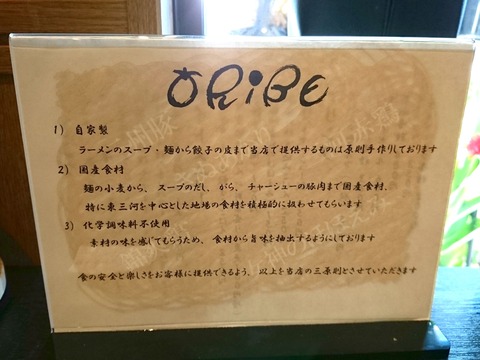 ORiBE
1) 自家製
ラーメンのスープ・麺から餃子の皮まで当店で提供するものは原則手作りしております
2) 国産食材
麺の小麦から、スープのだし、がら、チャーシューの豚肉まで国産食材、
特に東三河を中心とした地場の食材を積極的に扱わせてもらいます
3) 化学調味料不使用
素材の味を感じてもらうため、食材から旨味を抽出するようにしております
食の安全と楽しさをお客様に提供できるよう、以上を当店の三原則とさせていただきます